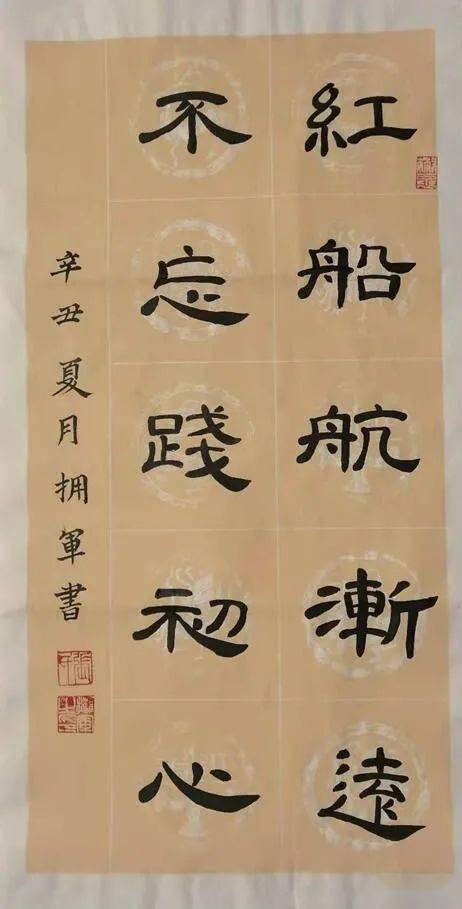 紅船航漸遠
不忘踐初心
辛丑夏月拥軍書